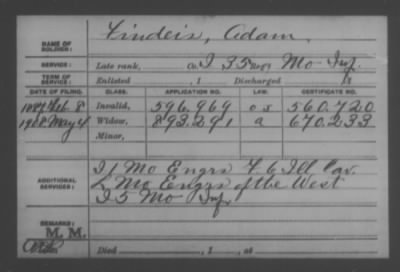 Lindeis, Adam.
NAME OF SOLDIER:
SERVICE: Late rank, Co. I 35 Reg't Mo Inf.
TERM OF SERVICE: Enlisted , 1 Discharged , 1
DATE OF FILING. CLASS. APPLICATION NO. LAW. CERTIFICATE NO.
Invalid, 596.969 560.720
1908 May 4 Widow, 893.291 a 670.233
Minor,
ADDITIONAL SERVICES:
I 1 Mo Engrs F. 6 Ill Cav.
L Mo Engrs of the West
I 5 Mo Inf
REMARKS:
M. M.
Died , 1 , at